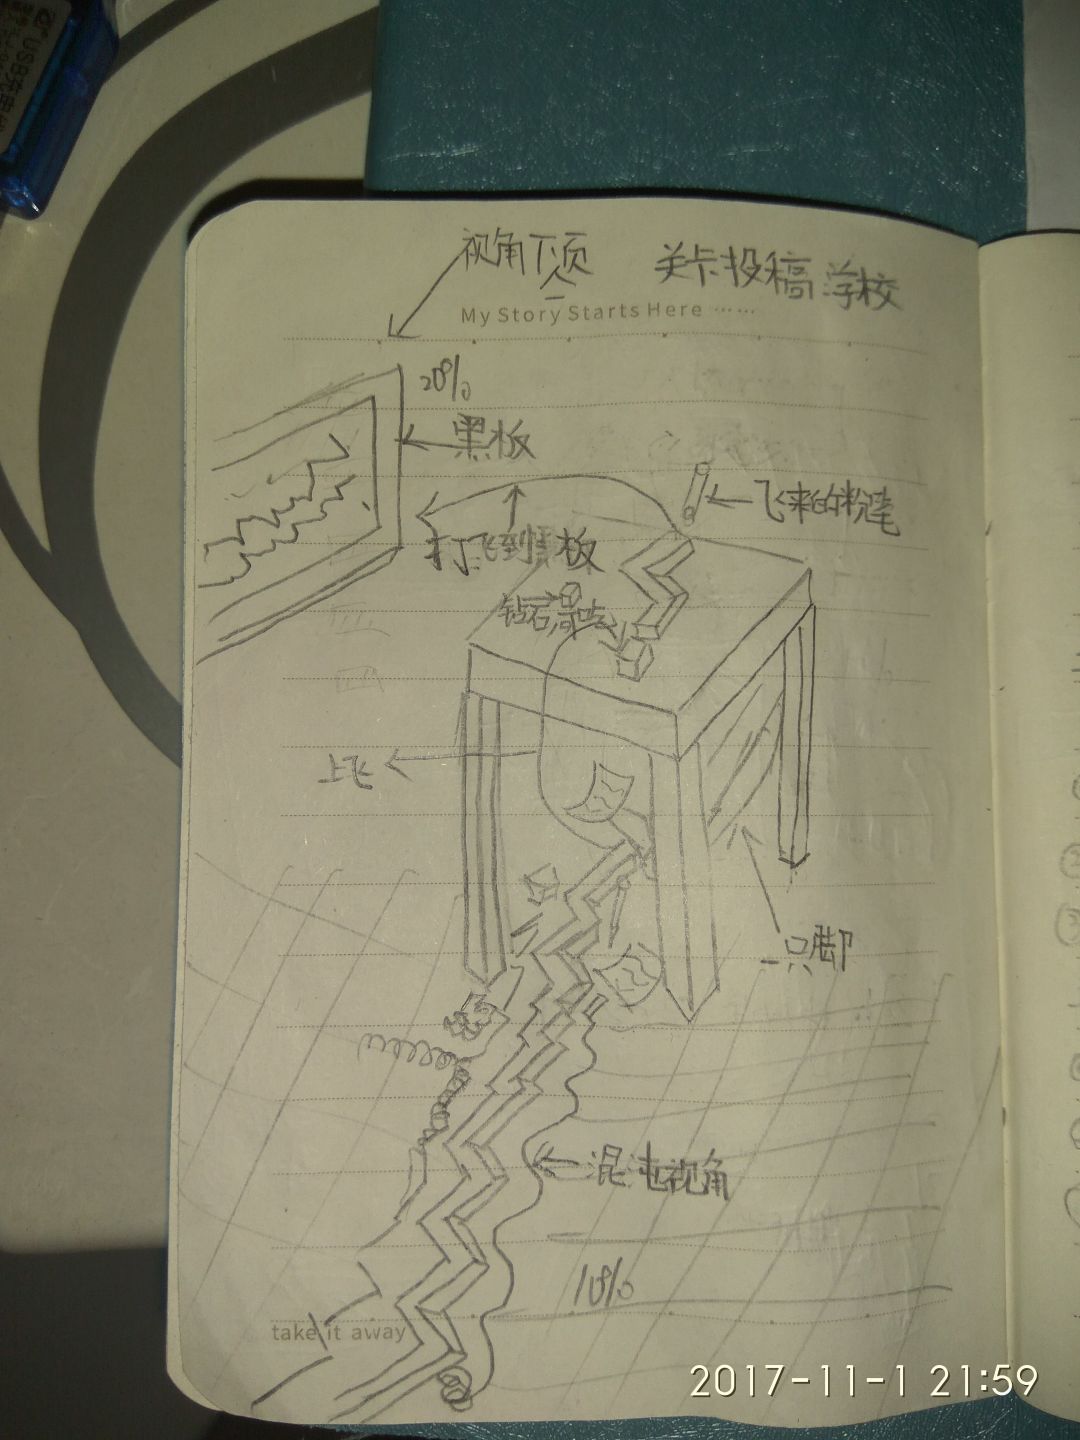 USB
视角下页
关卡投稿 学校
My Story Starts Here ······
20%
黑板
飞来的粉笔
打飞到黑板
钻石
上飞
一只脚
混沌视角
10%
take it away
2017-11-1 21:59